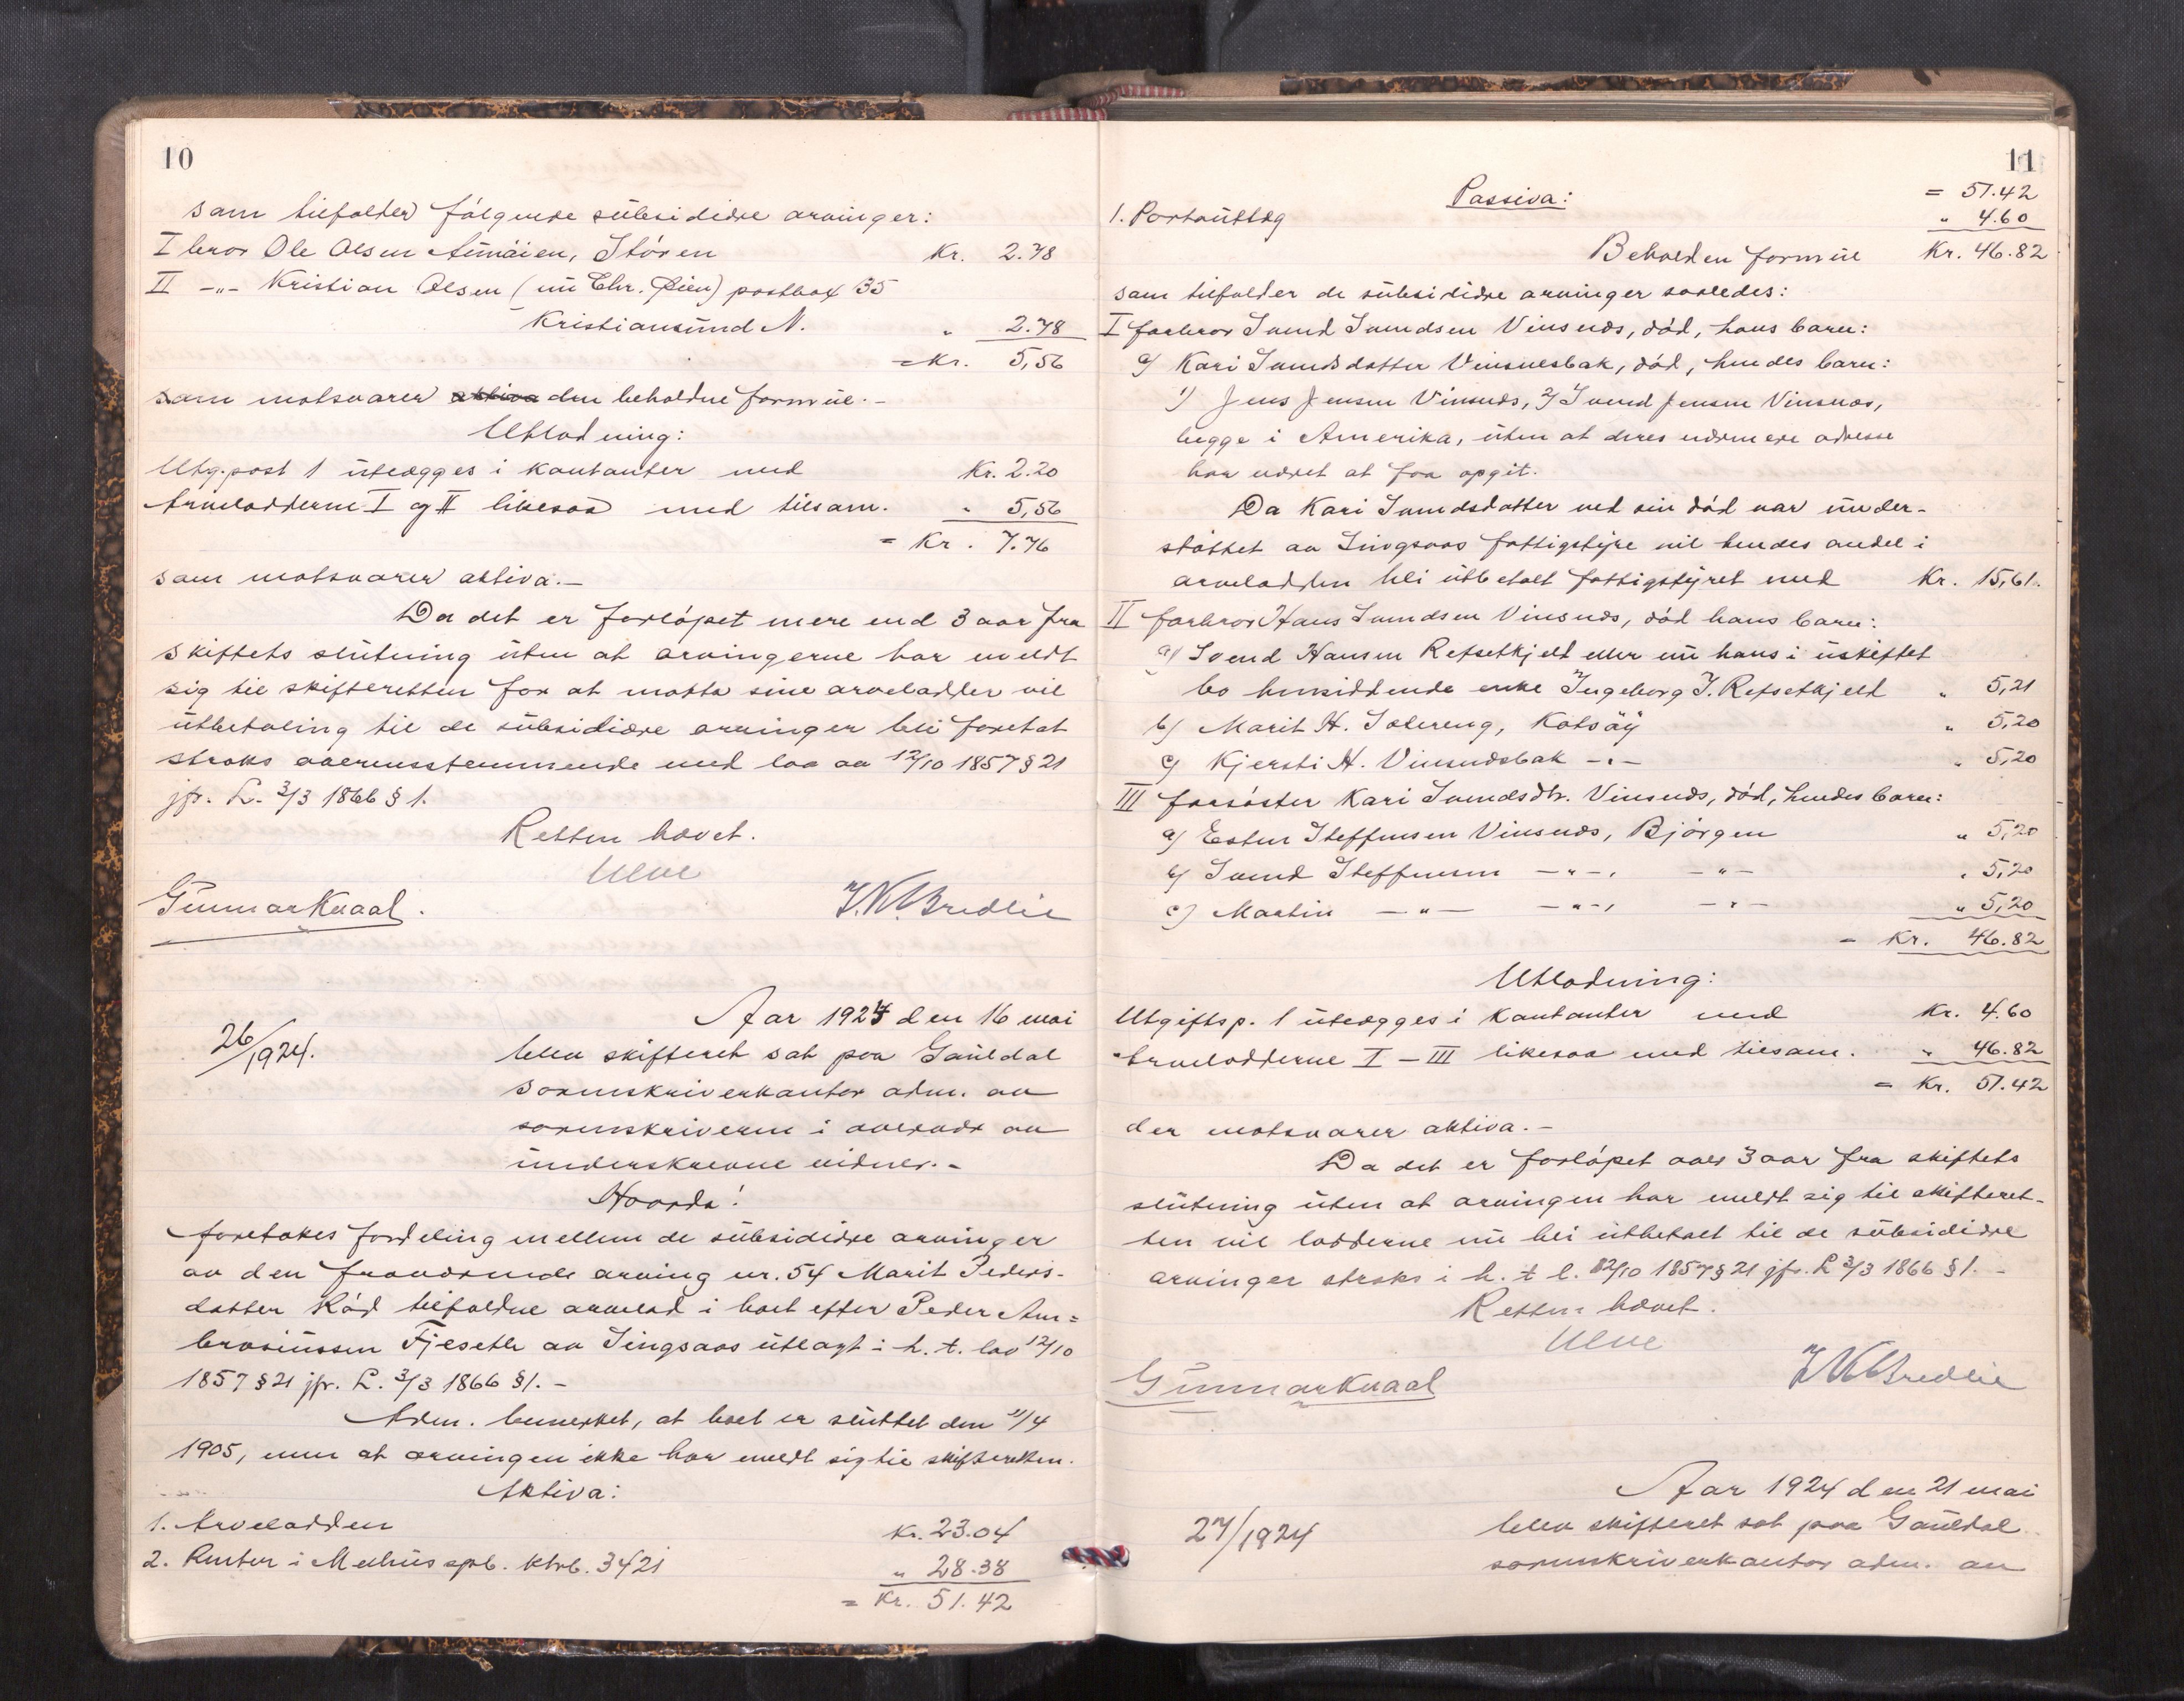 10
som tilfalder følgende subsidiære arvinger:
I bror Ole Olsen Aunøien, Støren Kr. 2.78
II -"- Kristian Olsen (nu Chr. Øien) postbox 35
Kristiansund N. " 2.78
= Kr. 5,56
som motsvarer aktiva den beholdne formue.-
Utlodning:
Utg.post 1 utlægges i kontanter med Kr. 2.20
Arvelodderne I og II likesaa med tilsam. " 5,56
= Kr. 7.76
som motsvarer aktiva.-
Da det er forløpet mere end 3 aar fra
skiftets slutning uten at arvingerne har meldt
sig til skifteretten for at motta sine arvelodder vil
utbetaling til de subsidiære arvinger bli foretat
straks overensstemmende med lov av 12/10 1857 § 21
jfr. L. 3/3 1866 § 1.
Retten hævet.
Ulve
Gunnar Kvaal. J.K. Bredlie
26/1924.
Aar 1924 den 16 mai
blev skifteret sat paa Gauldal
sorenskriverkontor adm. av
sorenskriveren i overvær av
underskrevne vidner.-
Hvorda!
foretokes fordeling mellem de subsidiære arvinger
av den fraværende arving nr. 54 Marit Peders-
datter Rød tilfaldne arvelod i boet efter Peder Am=
brosiussen Fjeseth av Singsaas utlagt i h. t. lov 12/10
1857 § 21 jfr. L. 3/3 1866 § 1.-
Adm. bemerket, at boet er sluttet den 11/4
1905, men at arvingen ikke har meldt sig til skifteretten.
Aktiva:
1. Arvelodden Kr. 23.04
2. Renter i Melhus spb. ktrb. 3421 " 28.38
= Kr. 51.42
11
= 51.42
Passiva:
1. Portoutlæg " 4.60
Beholden formue Kr. 46.82
som tilfalder de subsidiære arvinger saaledes:
I farbror Svend Svendsen Vinsnes, død, hans barn:
a) Kari Svendsdatter Vinsnesbak, død, hendes barn:
1) Jens Jensen Vinsnes, 2) Svend Jensen Vinsnes,
begge i Amerika, uten at deres nærmere adresse
har været at faa opgit.
Da Kari Svendsdatter ved sin død var under-
støttet av Singsaas fattigstyre vil hendes andel i
arvelodden bli utbetalt fattigstyret med Kr. 15,61.
II farbror Hans Svendsen Vinsnes, død hans barn:
a) Svend Hansen Refsetkjelt eller nu hans i uskiftet
bo hensiddende enke Ingeborg J. Refsetkjelt " 5,21
b) Marit H. Solereng, Kotsøy " 5,20
c) Kjersti H. Vinsnesbak -"- " 5,20
III farsøster Kari Svendsdtr. Vinsnes, død, hendes barn:
a) Esten Steffensen Vinsnes, Bjørgen " 5,20
b) Svend Steffensen -"-, -"- " 5,20
c) Martin -"- -"-, -"- " 5,20
= Kr. 46.82
Utlodning:
Utgiftsp. 1 utlægges i kontanter med Kr. 4.60
Arvelodderne I - III likesaa med tilsam. " 46.82
= Kr. 51.42
der motsvarer aktiva.-
Da det er forløpet over 3 aar fra skiftets
slutning uten at arvingen har meldt sig til skifteret-
ten vil lodderne nu bli utbetalt til de subsidiære
arvinger straks i h. t l. 12/10 1857 § 21 jfr. L 3/3 1866 § 1.-
Retten hævet.
Ulve
Gunnar Kvaal J K Bredlie
Aar 1924 den 21 mai
27/1924 blev skifteret sat paa Gauldal
sorenskriverkontor adm. av